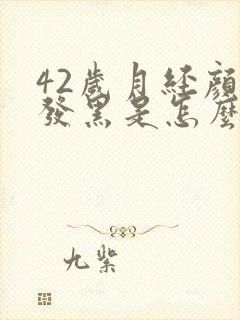 42歲月經顏
發黑是怎麼
九紫